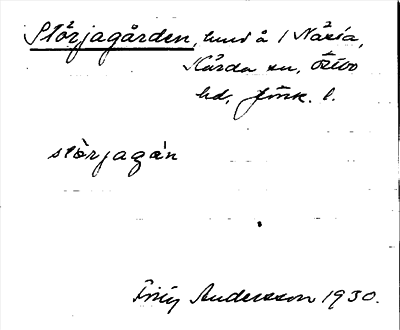 Störjagården, hmd å 1 Näsía,
Kärda sn, Östbo
hd, Jönk. l.
störjagán
Andersson 1930.